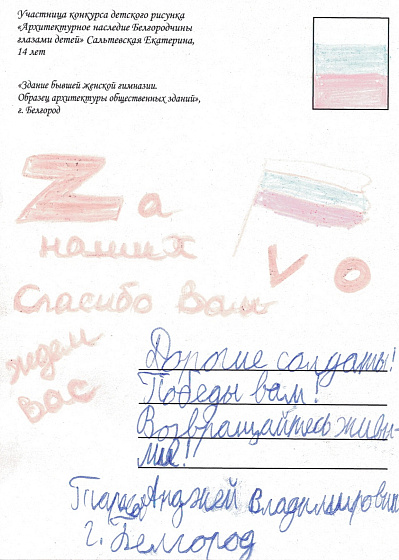 Участница конкурса детского рисунка
«Архитектурное наследие Белгородчины
глазами детей» Сальтевская Екатерина,
14 лет
«Здание бывшей женской гимназии.
Образец архитектуры общественных зданий»,
г. Белгород
Zа
наших
V O
Спасибо вам
ждем
вас
Дорогие солдаты!
Победы вам!
Возвращайтесь живы-
ми!
Анджей Владимирович
г. Белгород